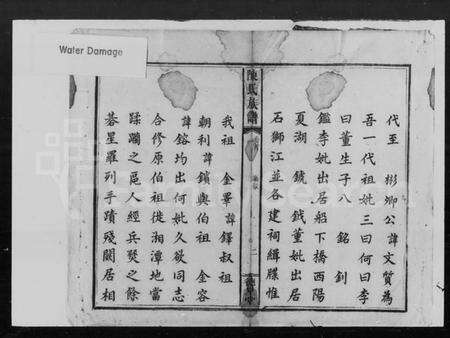 Water Damage
代至 彬卿公諱文質為
吾一代祖妣三曰何曰李
曰董生子八 銘釗
鑑李妣出居船下橋西陽
夏湖 鐃鉞董妣出居
石獅江並各建祠緝牒惟
陳氏族譜
二
我祖 金畢諱鐸叔祖
朝利諱鎖與伯祖 金容
諱鎔均出何妣久欲同志
合修原伯祖徙湘潭地當
蹂躪之區人經兵燹之餘
碁星羅列手蹟殘闕居相